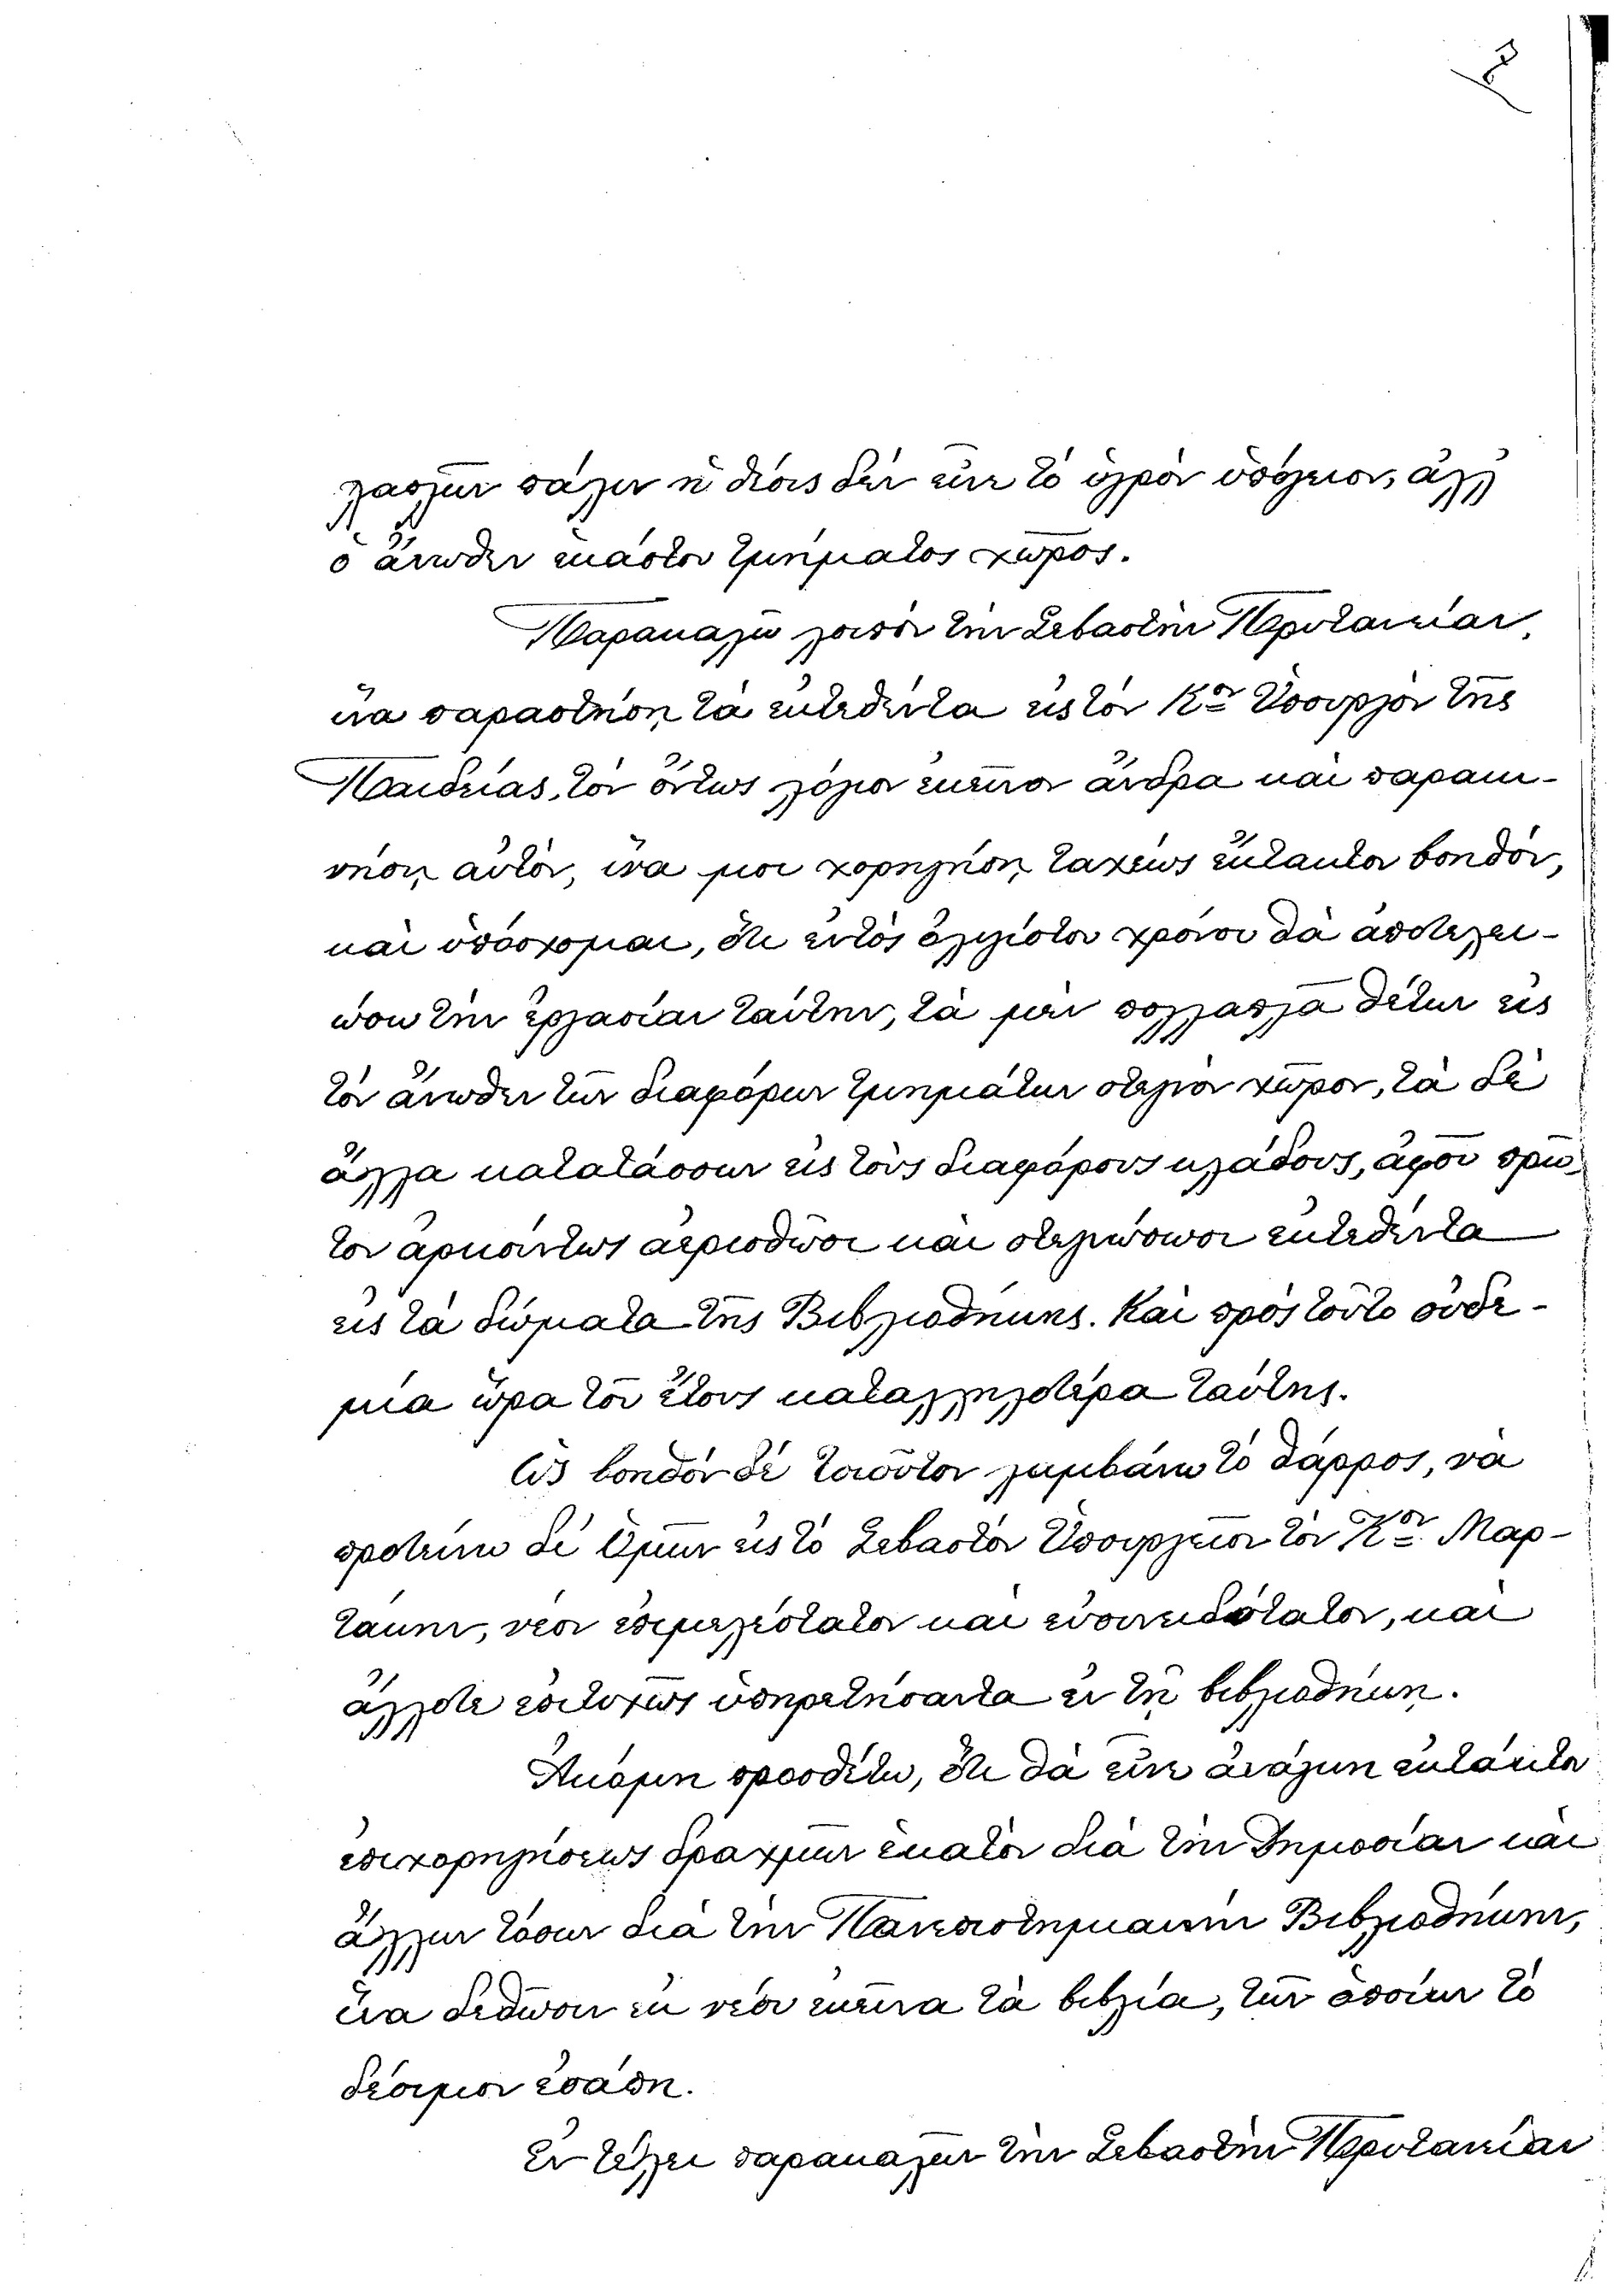 πλασίων πάλιν ἡ θέσις δὲν εἶνε τὸ ὑγρὸν ὑπόγειον, ἀλλ'
ὁ ἄνωθεν ἑκάστου τμήματος χῶρος.
Παρακαλῶ λοιπὸν τὴν Σεβαστὴν Πρυτανείαν,
ἵνα παραστήσῃ τὰ ἐκτεθέντα εἰς τὸν Κον Ὑπουργὸν τῆς
Παιδείας, τὸν ὄντως λόγιον ἐκεῖνον ἄνδρα καὶ παραιι-
νέσῃ αὐτόν, ἵνα μοι χορηγήσῃ ταχέως ἔκτακτον βοηθόν,
καὶ ὑπόσχομαι, ὅτι ἐντὸς ὀλιγίστου χρόνου θὰ ἀποτελει-
ώσω τὴν ἐργασίαν ταύτην, τὰ μὲν πολλαπλᾶ θέτων εἰς
τὸν ἄνωθεν τῶν διαφόρων τμημάτων στεγνὸν χῶρον, τὰ δὲ
ἄλλα κατατάσσων εἰς τοὺς διαφόρους κλάδους, ἀφοῦ πρῶ-
τον ἀρκούντως ἀερισθῶσι καὶ στεγνώσωσι ἐκτεθέντα
εἰς τὰ δώματα τῆς Βιβλιοθήκης. Καὶ πρὸς τοῦτο οὐδε-
μία ὥρα τοῦ ἔτους καταλληλοτέρα ταύτης.
Ὡς βοηθὸν δὲ τοιοῦτον λαμβάνω τὸ θάρρος, νὰ
προτείνω δι' Ὑμῶν εἰς τὸ Σεβαστὸν Ὑπουργεῖον τὸν Κον Μαρ-
τάκην, νέον ἐπιμελέστατον καὶ εὐσυνειδότατον, καὶ
ἄλλοτε ἐπιτυχῶς ὑπηρετήσαντα ἐν τῇ βιβλιοθήκῃ.
Ἀκόμη προσθέτω, ὅτι θὰ εἶνε ἀνάγκη ἐκτάκτου
ἐπιχορηγήσεως δραχμῶν ἑκατὸν διὰ τὴν Δημοσίαν καὶ
ἄλλων τόσων διὰ τὴν Πανεπιστημιακὴν Βιβλιοθήκην,
ἵνα δεθῶσιν ἐκ νέου ἐκεῖνα τὰ βιβλία, τῶν ὁποίων τὸ
δέσιμον ἐσάπη.
Ἐν τέλει παρακαλῶν τὴν Σεβαστὴν Πρυτανείαν